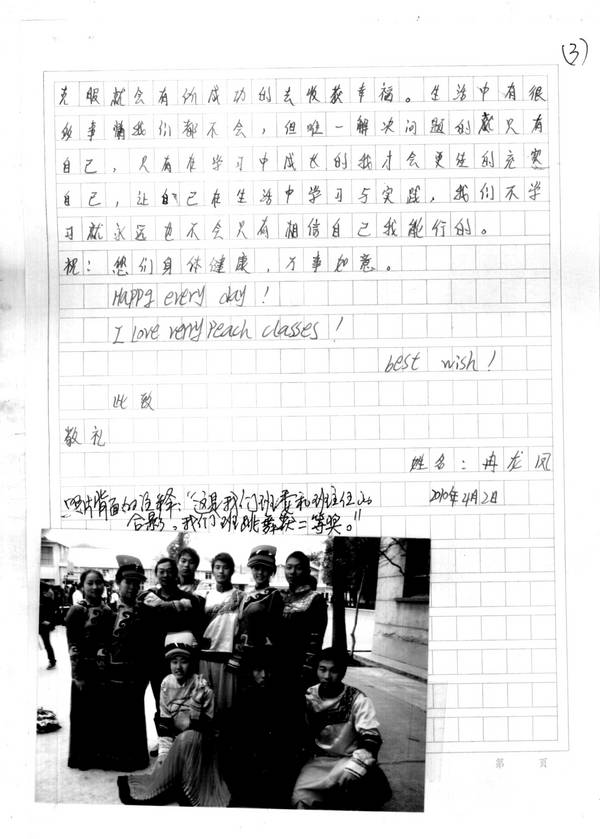 (3)
克服就会有价成功的去收获幸福。生活中有很
多事情我们都不会，但唯一解决问题的就只有
自己，只有在学习中成长的我才会更佳的充实
自己，让自己在生活中学习与实践，我们不学
习就永远也不会只有相信自己我能行的。
祝：您们身体健康，万事如意。
Happy every day!
I Love very Peach classes!
best wish!
此致
敬礼
姓名：冉龙凤
2010年4月2日
照片背面的注释："这是我们班委和班主任的
合影，我们班跳舞获二等奖。"
第 页